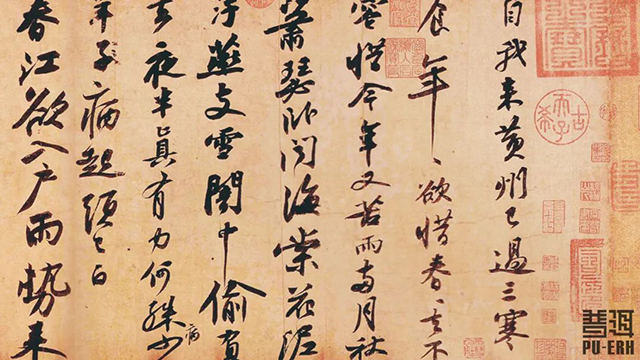 自我来黄州已過三寒
食年〻欲惜春〻去不
容惜今年又苦雨兩月秋
蕭瑟卧聞海棠花泥
汙燕支雪闇中偷負
去夜半真有力何殊少
病
年子病起須已白
春江欲入戶雨勢来
古希天子
普洱
PU-ERH